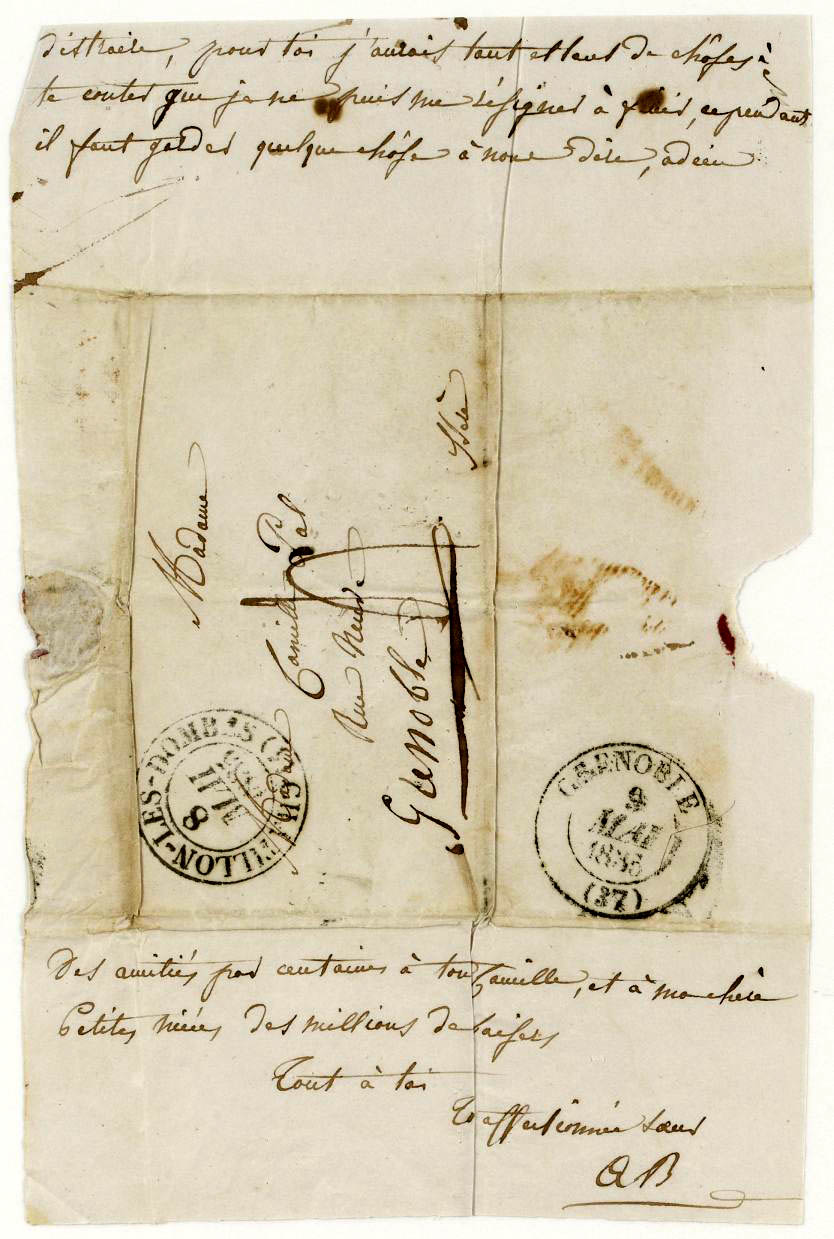 distraire, pour toi j'aurais tant et tant de chôses à
te conter que je ne puis me résigner à finir, cependant
il faut garder quelque chôse à nous dire, adieu
Madame
Madame Camille Pal
Rue Neuve
Grenoble
Isère
CHATILLON-LES-DOMBES
8
MAI
GRENOBLE
9
MAI
1835
(37)
Des amitiés par centaines à ton Camille, et à ma chère
Petite nièce des millions de baisers
Tout à toi
Ta affectionnée soeur
A B